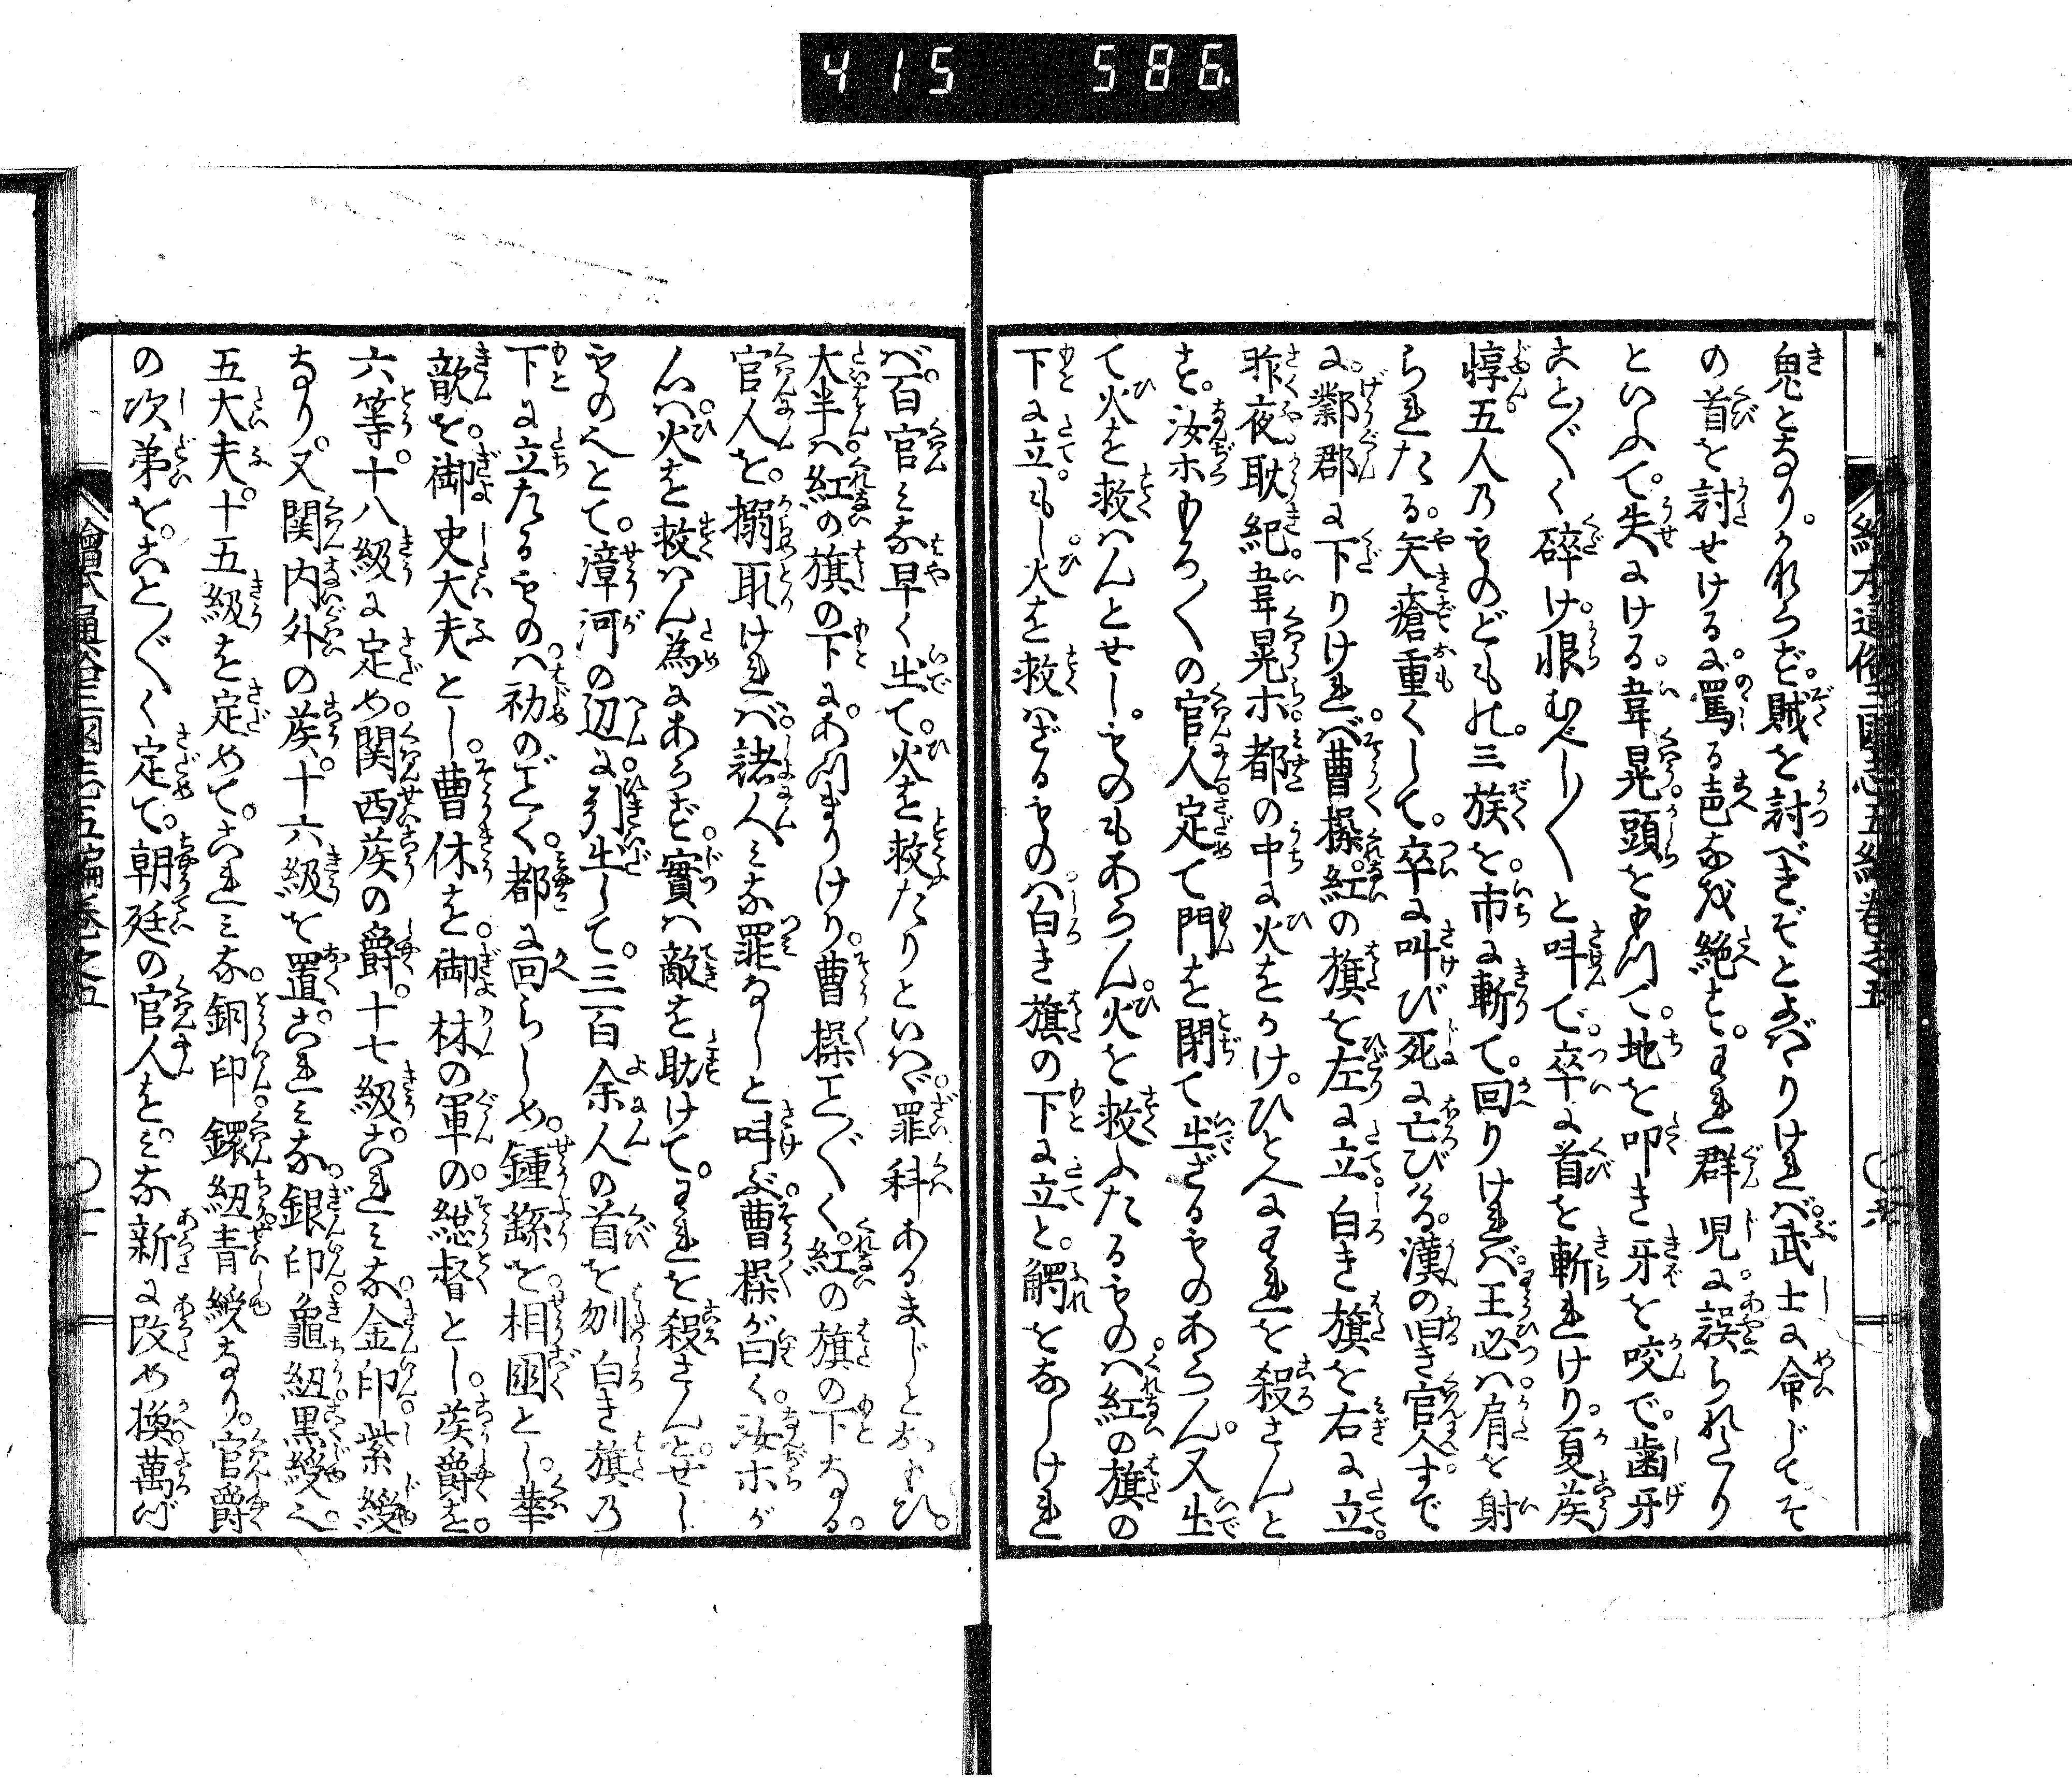 415 586
絵本通俗三国志五編巻之五
鬼となりかならず。賊を討べきぞとよバヽりけれバ。武士に命じてそ
の首を討せけるに。罵る声なを絶ず。われ群児に誤られたり
といふて。失にける。韋晃頭をもつて。地を叩き牙を咬で。歯牙
ことごとく砕け。恨むべし〳〵と叫で。卒に首を斬れけり。夏侯
惇五人のものどもの。三族を。市に斬て。回りけれバ。王必ハ肩を射
られたる。矢瘡重くして。卒に叫び死に亡びける。漢の旧き官人すで
に。鄴郡に下りけれバ。曹操。紅の旗を左に立。白き旗を右に立。
昨夜。耿紀。韋晃ホ。都の中に火をかけ。ひと人にわれを殺さんと
す。汝ホもろ〳〵の官人定て門を閉て出ざるものあらん。又出
て火を救ハんとせし。ものもあらん。火を救ふたるものハ。紅の旗の
下に立。もし火を救ハざるものハ。白き旗の下に立と。觸をなしけれ
バ。百官みな早く出て。火を救たりといハヾ。罪科あるまじとおもひ。
大半ハ紅の旗の下に。あつまりけり。曹操ことごとく。紅の旗の下なる。
官人を。搦取けれバ。諸人みな罪なしと叫ぶ。曹操が曰く。汝ホが
心ハ。火を救ハん為にあらず。實ハ敵を助けて。われを殺さんとせし
ものなりとて。漳河の辺に。引出して。三百余人の首を刎。白き旗の
下に立たるものハ。初のごとく。都に回らしめ。鍾繇を。相國とし。華
歆を。御史大夫とし。曹休を。御林の軍の。総督とし。侯爵を。
六等。十八級に定め。関西侯の爵。十七級。これみな。金印紫綬
なり。又関内外の侯。十六級を置。これみな。銀印龜紐黒綬なり。
五大夫。十五級を定めて。これみな。銅印鐶紐青綬なり。官爵
の次第を。ことごとく定て。朝廷の官人を。みな新に改め換。萬づ
繪本通俗三國志五編巻之五